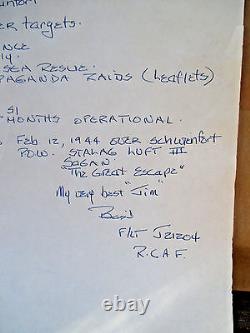 ER TARGETS.
NCE
SEA RESUE.
PAGANDA RAIDS (LEAFLETS)
MONTHS OPERATIONAL.
FEB 12, 1944 OVER SCHWIENFORT
P.O.W. STALAG LUFT III
SAGAN
"THE GREAT ESCAPE"
My very best "Jim"
F/LT J21204
R.C.A.F.
ebay